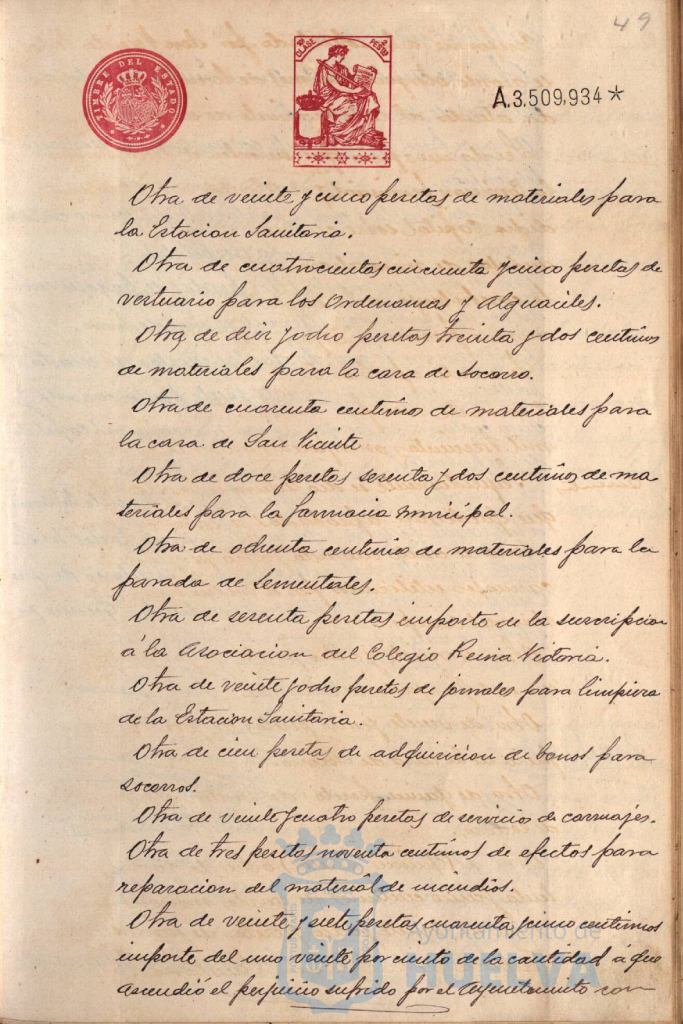 49
TIMBRE DEL ESTADO
10ª CLASE 2 PESTAS
A.3.509,934*
Otra de veinte y cinco pesetas de materiales para
la Estacion Sanitaria.
Otra de cuatrocientas cincuenta y cinco pesetas de
vestuario para los Ordenanzas y Alguaciles.
Otra de diez y ocho pesetas treinta y dos centimos
de materiales para la casa de Socorro.
Otra de cuarenta centimos de materiales para
la casa de San Vicente
Otra de doce pesetas sesenta y dos centimos de ma
teriales para la farmacia municipal.
Otra de ochenta centimos de materiales para la
parada de Sementales.
Otra de sesenta pesetas importe de la suscripcion
á la Asociacion del Colegio Reina Victoria.
Otra de veinte y ocho pesetas de jornales para limpieza
de la Estacion Sanitaria.
Otra de cien pesetas de adquisicion de bonos para
socorros.
Otra de veinte y cuatro pesetas de servicios de carruajes.
Otra de tres pesetas noventa centimos de efectos para
reparacion del material de incendios.
Otra de veinte y siete pesetas cuarenta y cinco centimos
importe del uno veinte por ciento de la cantidad á que
ascendió el perjuicio sufrido por el Ayuntamiento con
Ayuntamiento de
HUELVA